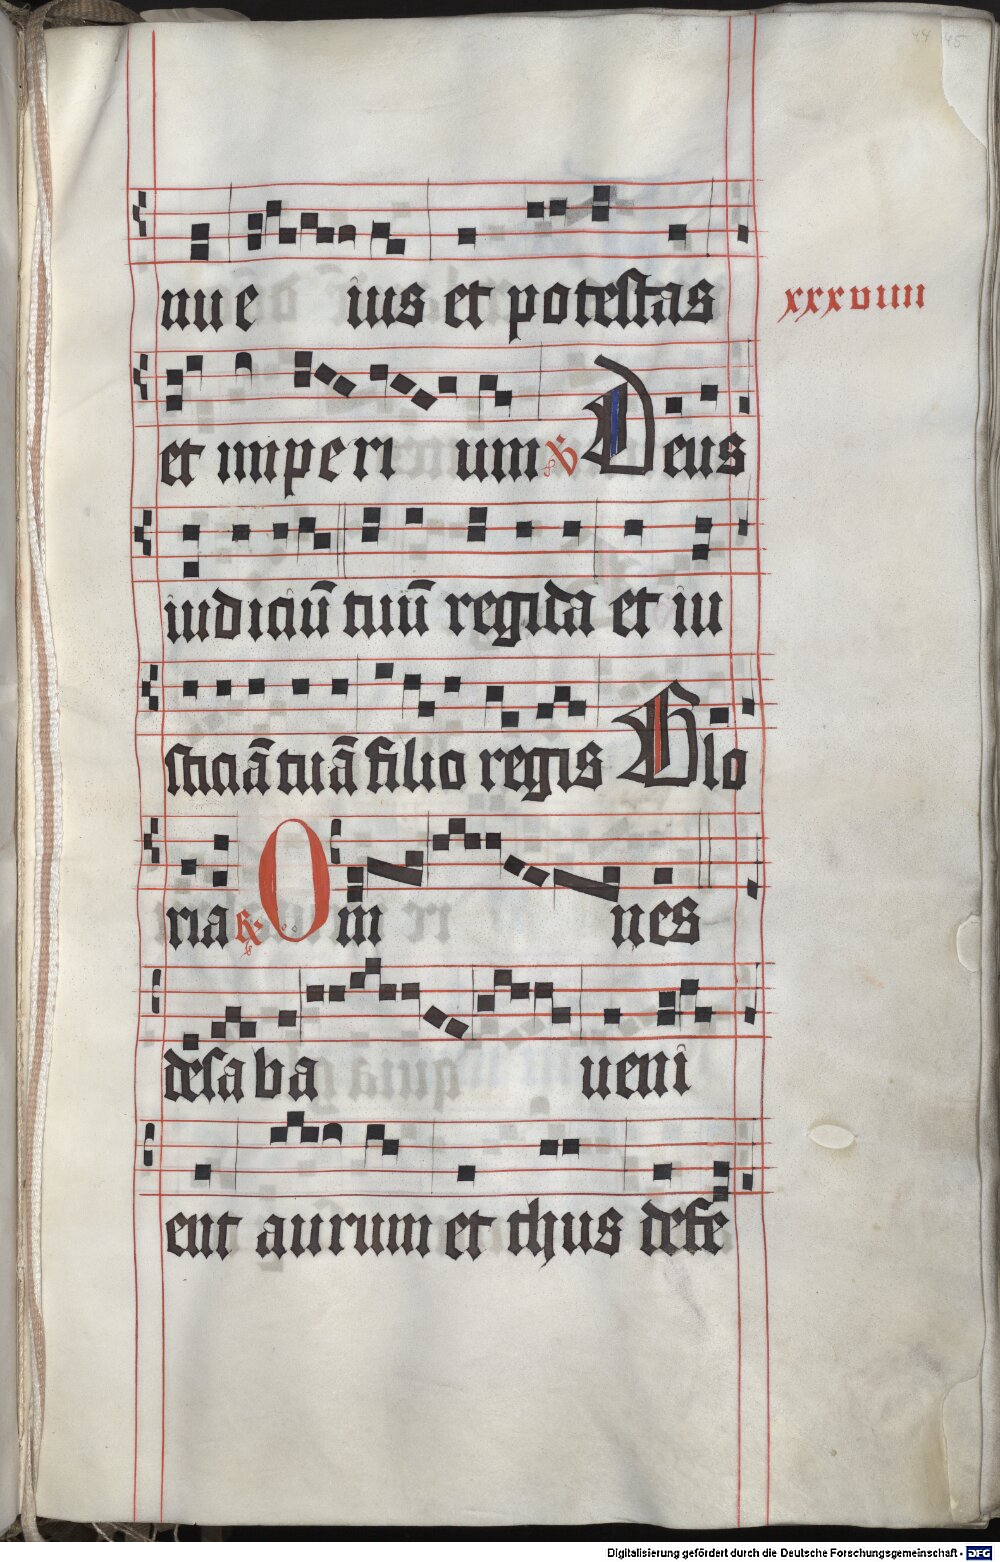 nu e ius et potestas
xxxviiii
et imperi um ℣ Deus
iudiciū tuū regi da et iu
sticiā tuā filio regis Glo
ria ℟ Om nes
de saba veni
ent aurum et thus defe
Digitalisierung gefördert durch die Deutsche Forschungsgemeinschaft - DFG